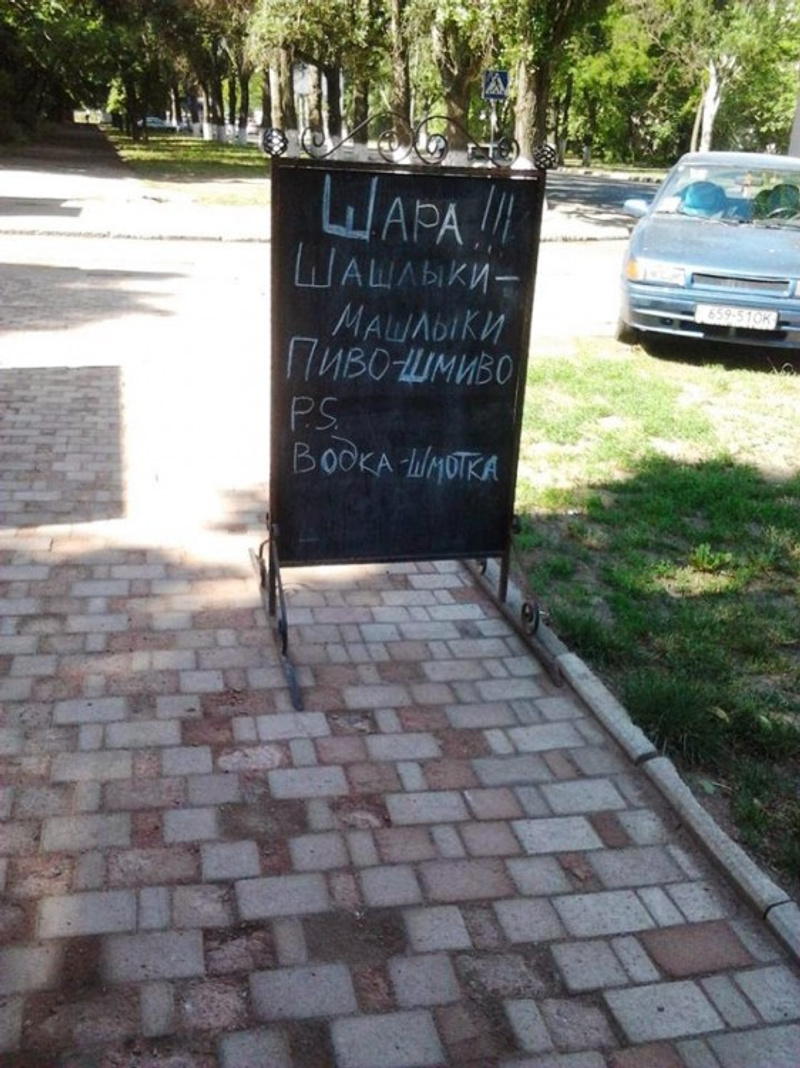 ШАРА!!!
ШАШЛЫКИ-
МАШЛЫКИ
ПИВО-ШМИВО
P.S.
ВОДКА-ШМОТКА
659-51OK